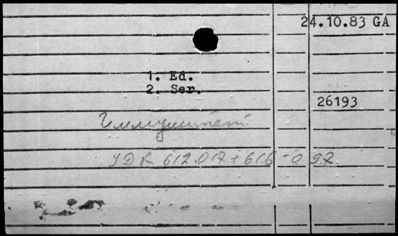 24.10.83 GA
1. Ed.
2. Ser.
26193
Иммунитет
УДК 612.017+616-092